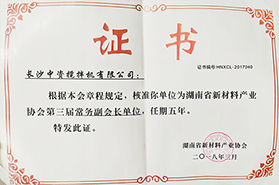 证 书
证书编号:HNXCL-2017040
长沙中资搅拌机有限公司:
根据本会章程规定，核准你单位为湖南省新材料产业
协会第三届常务副会长单位，任期五年。
特发此证。
湖南省新材料产业协会
二〇一八年三月